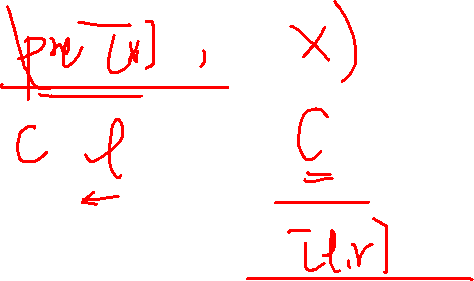 (pre[x], x)
C l C
[l,r]